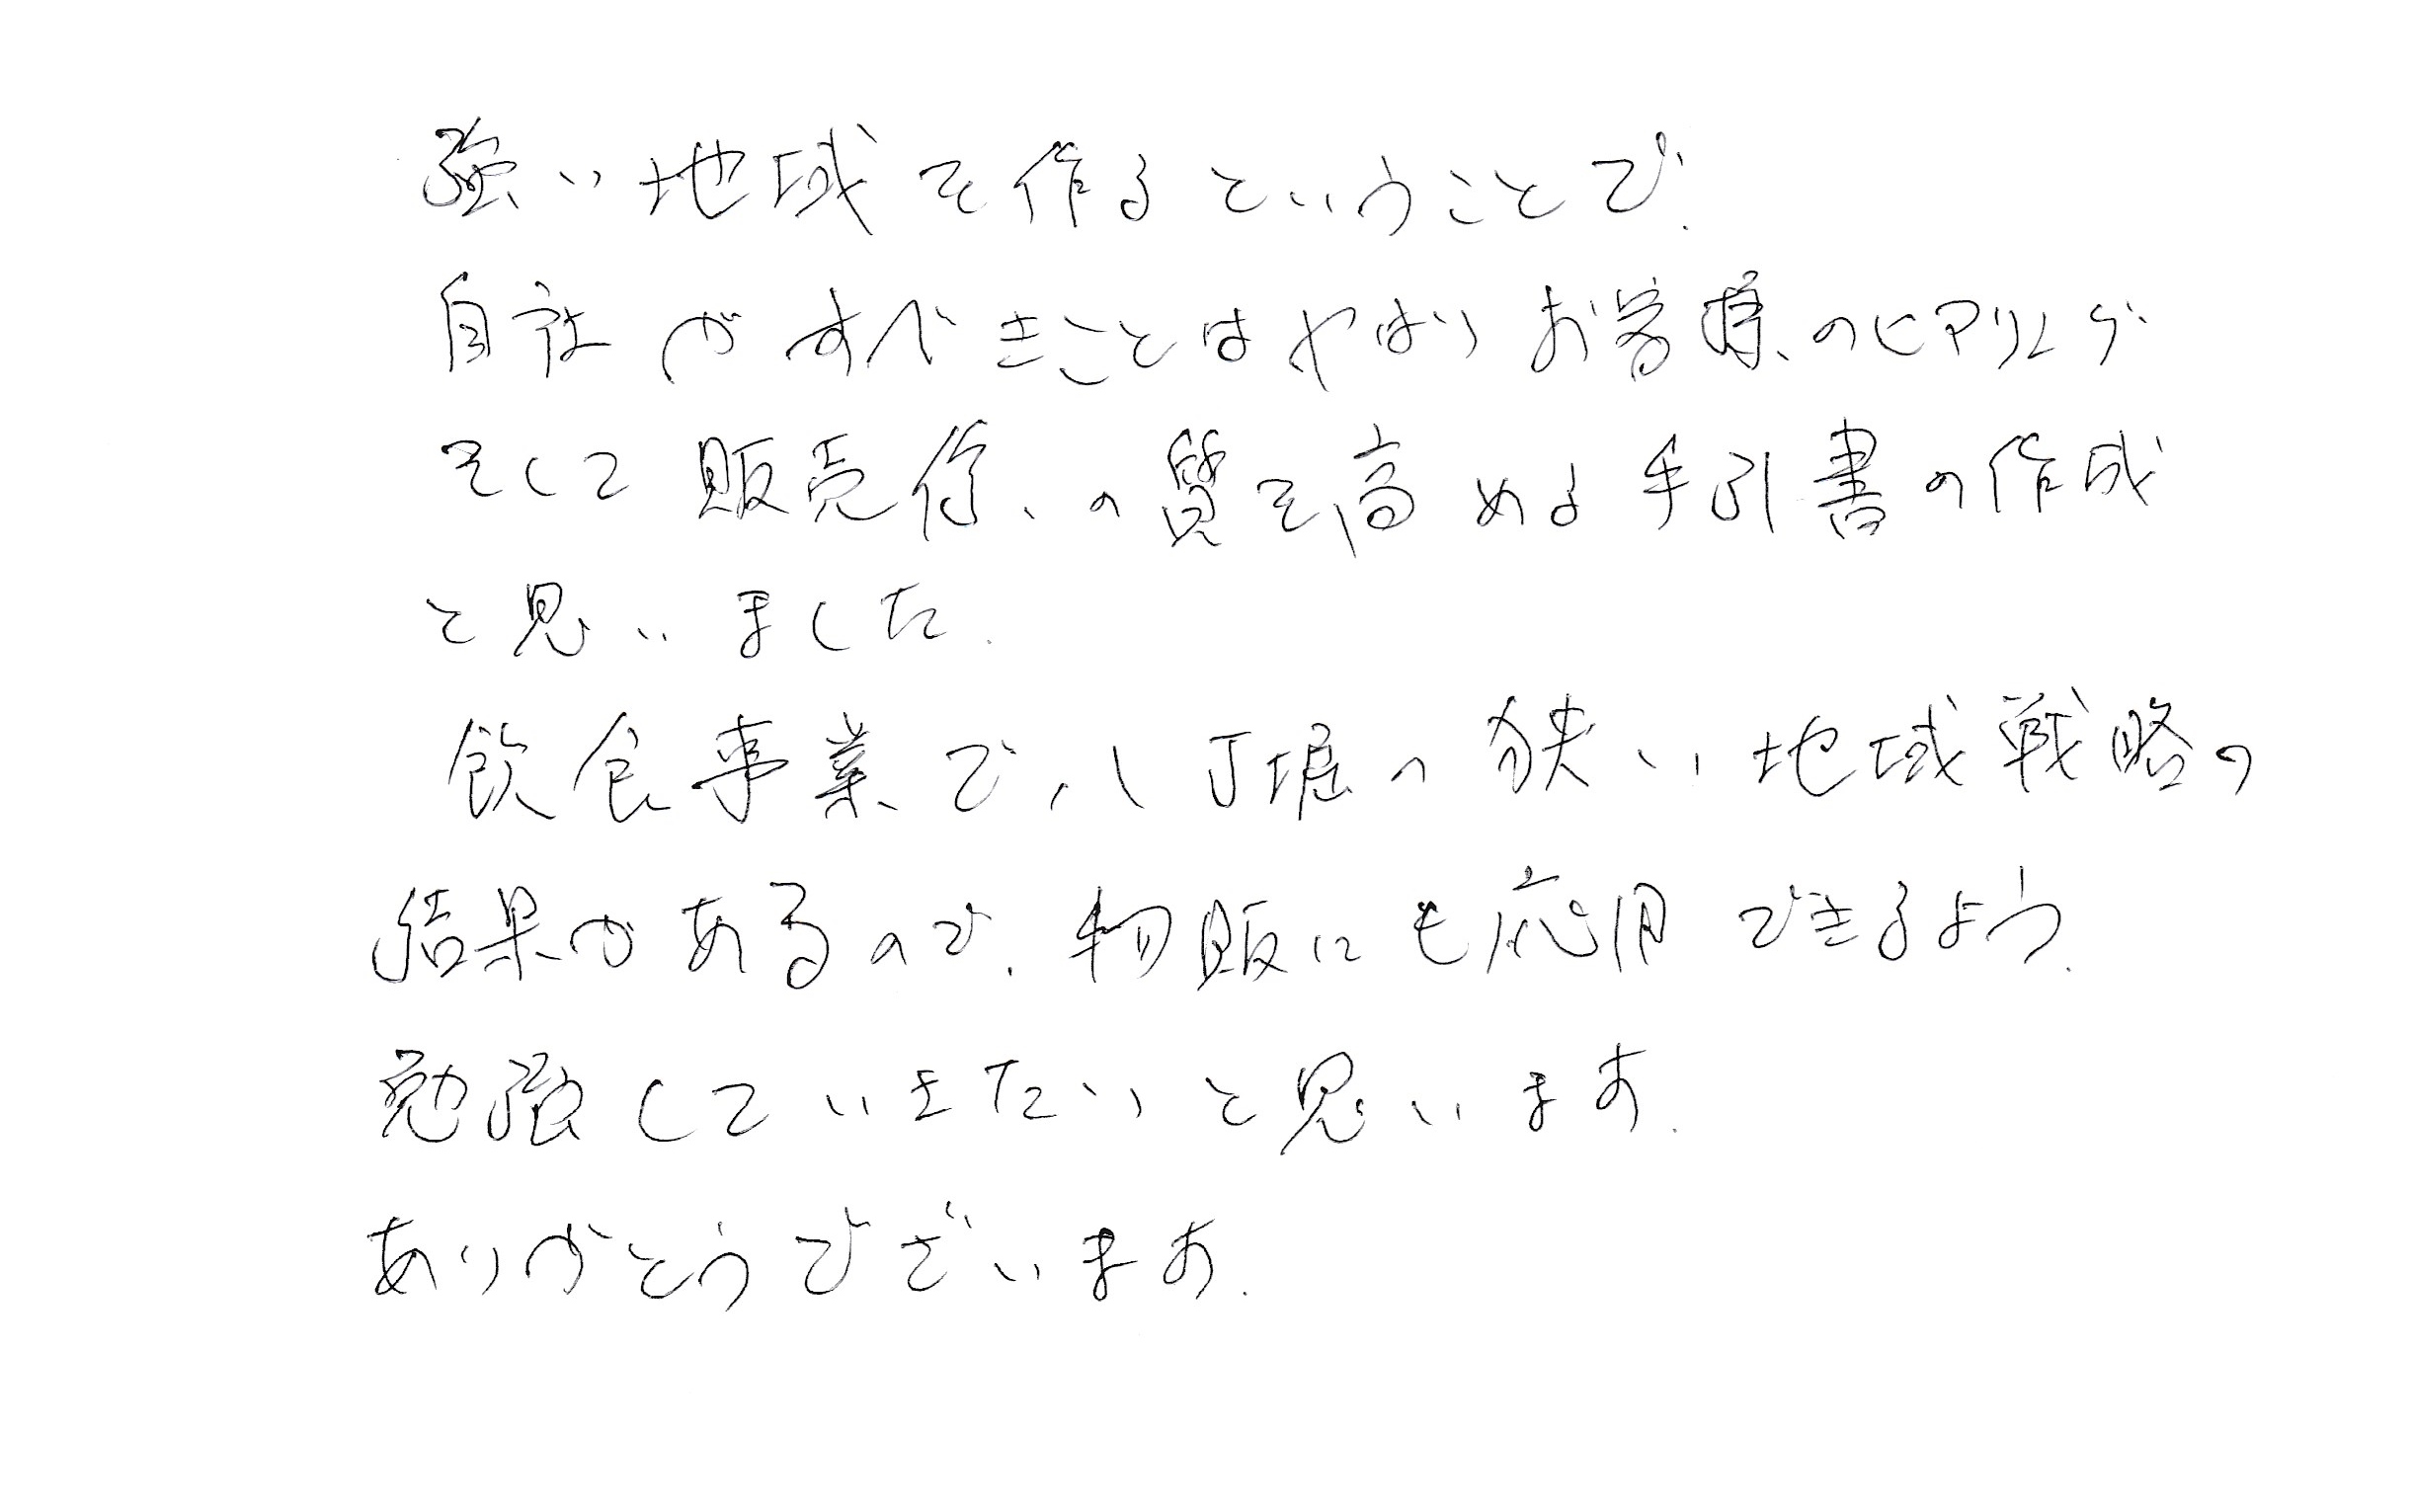 強い地域を作るということで、
自社がすべきことはやはりお客様のヒアリング
そして販売係の質を高める手引書の作成
と思いました。
飲食事業で八丁堀の狭い地域戦略の
結果があるので、物販にも応用できるよう、
勉強していきたいと思います。
ありがとうございます。